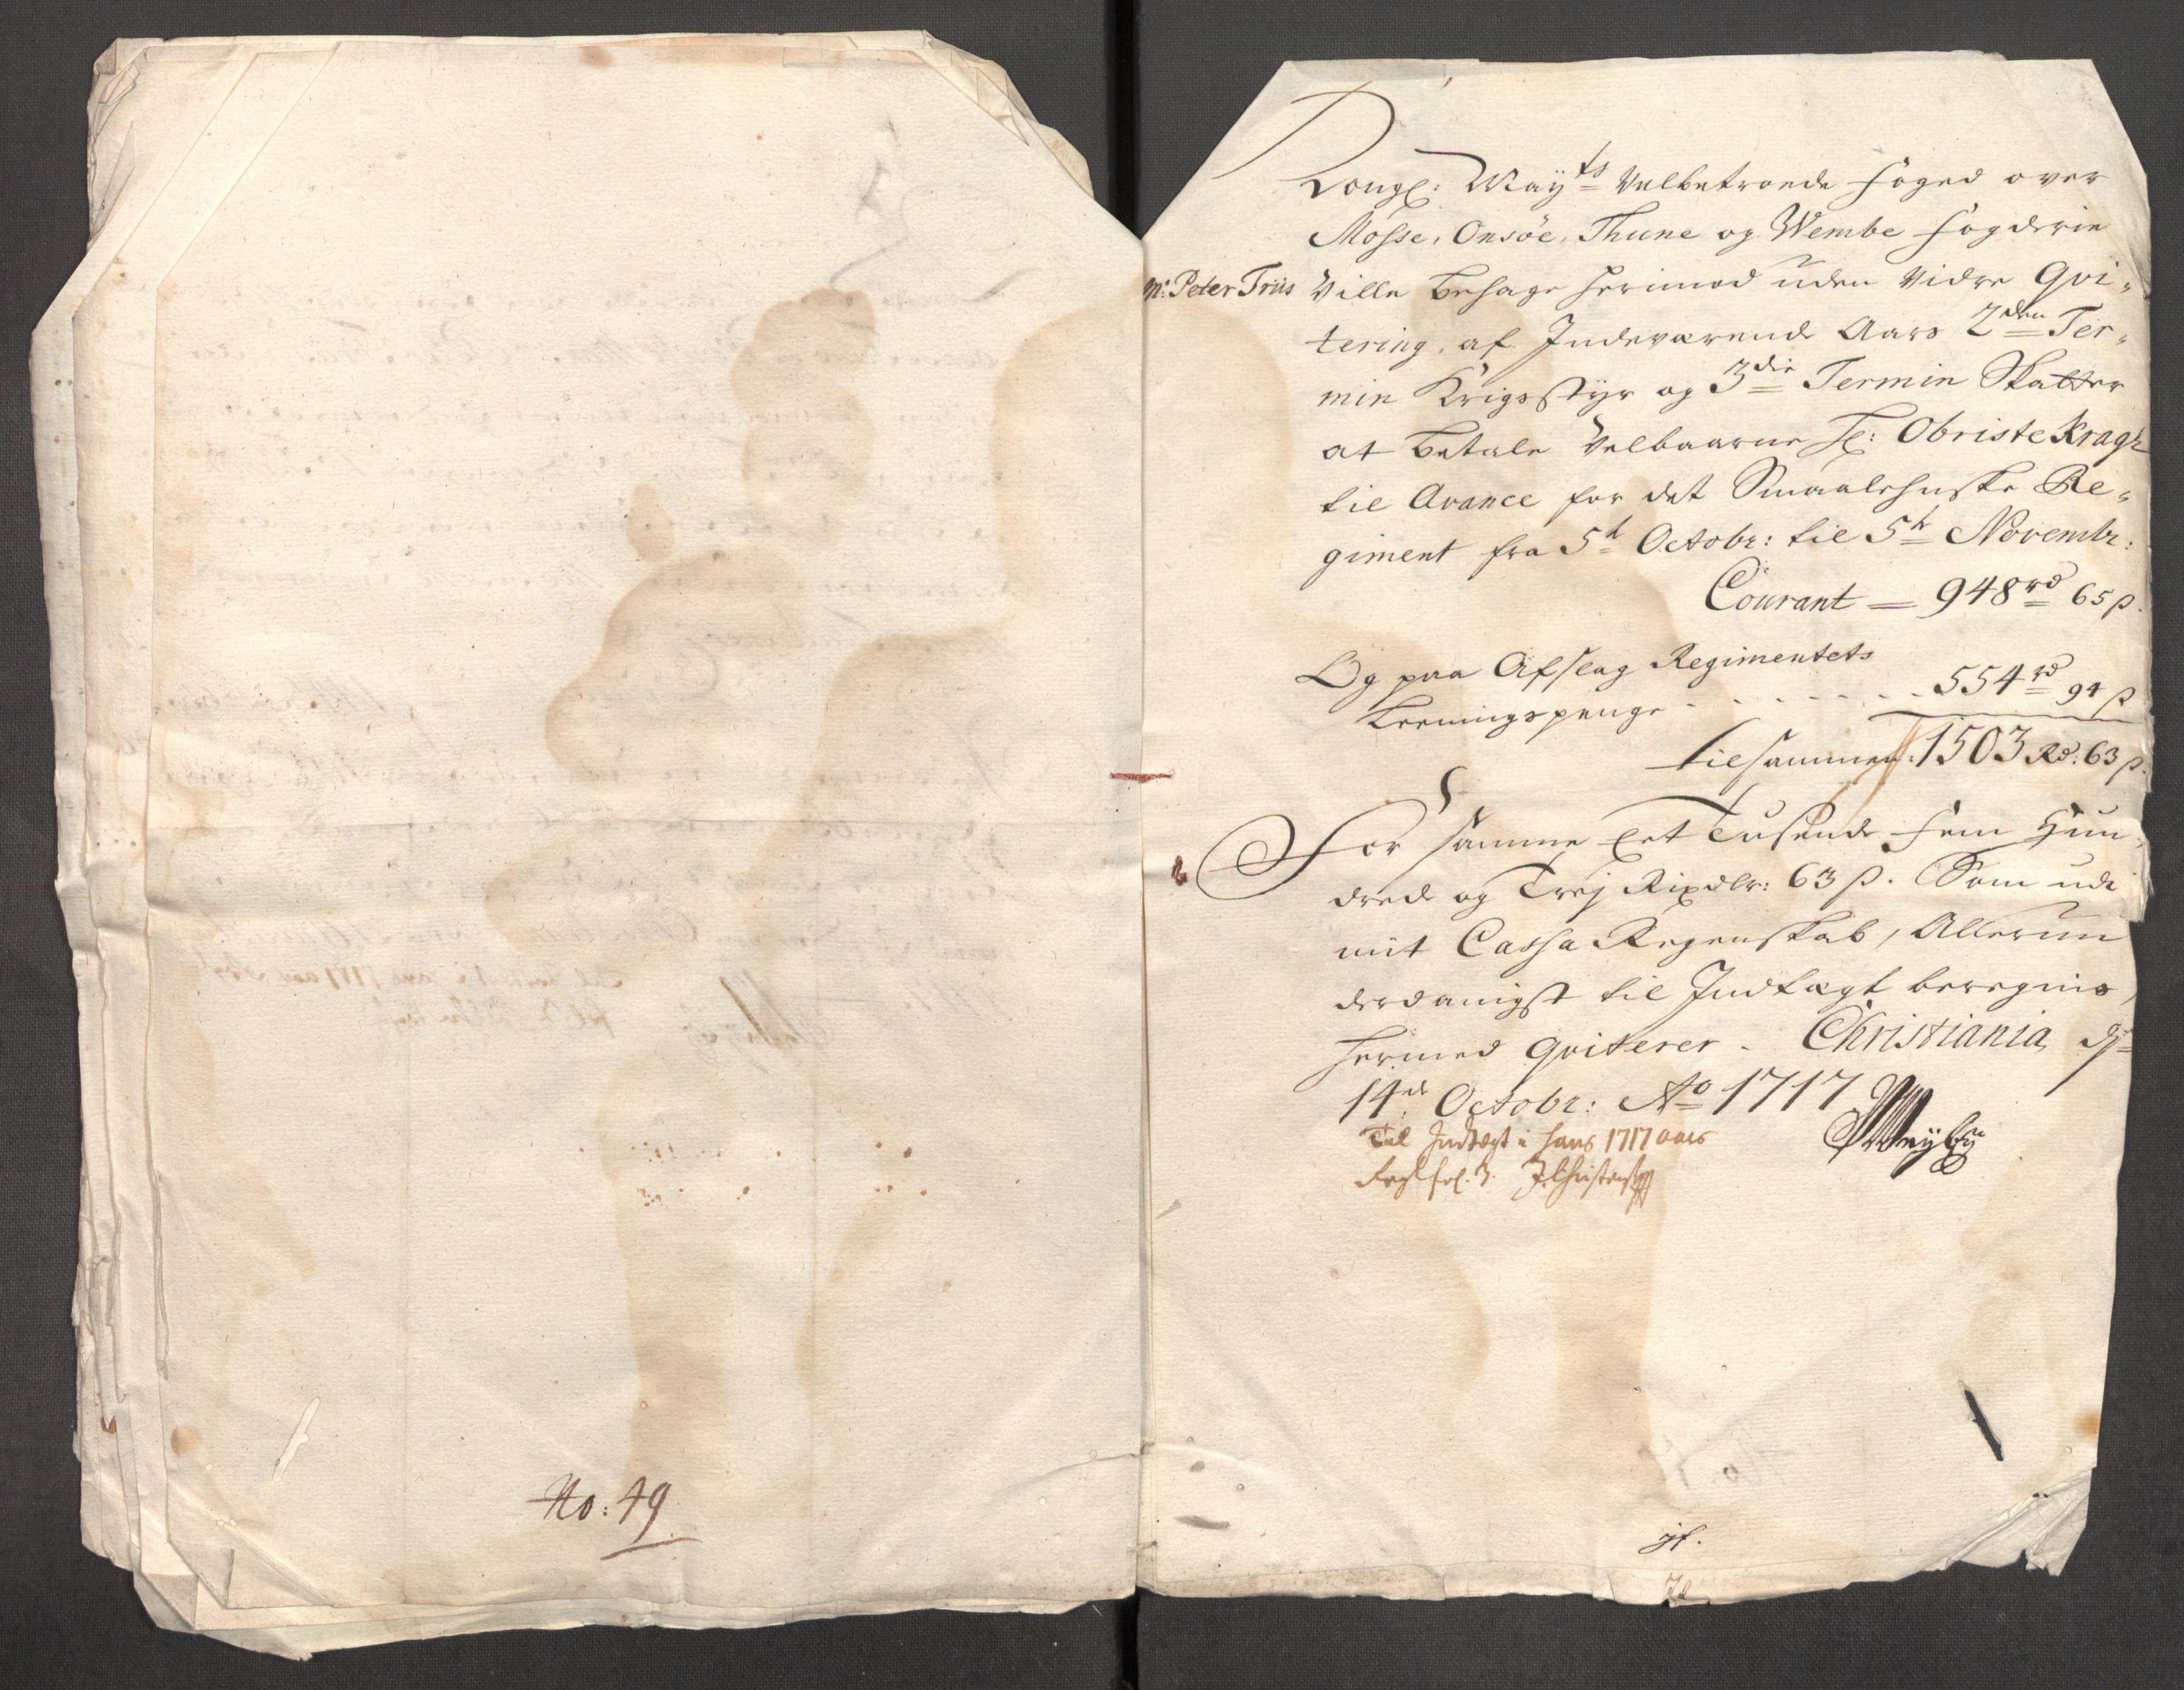 No: 49
Kongl: Maÿts Velbetroede Foged over
Mosse, Onsöe, Thune og Wembe Fogderie
Mr: Peter Friis Ville behage herimod uden Vidre Qvi-
tering, af Indeværende Aars 2den Ter-
min Krigsstyr og 3die Termin Skatter
at betale Velbaarne Hr: Obriste Kragh
til Avance for det Smaalehnske Re-
giment fra 5te Octobr: til 5te Novembr:
Courant = 948 rd 65 s
Og paa Afslag Regimentets
Leeningspenge . . . . . . . 554 rd 94 s
Tilsammen: 1503 Rd: 63 s.
For samme Eet Tusende Fem Hun-
drede og Trej Rixdlr: 63 s. Som udi
mit Cassa Regenskab, Allerun
derdanigst til Indtægt beregnis,
hermed Qviterer. Christiania d
14de Octobr: Ao 1717
Til Indtægt i hans 1717 aars
fol. 3.